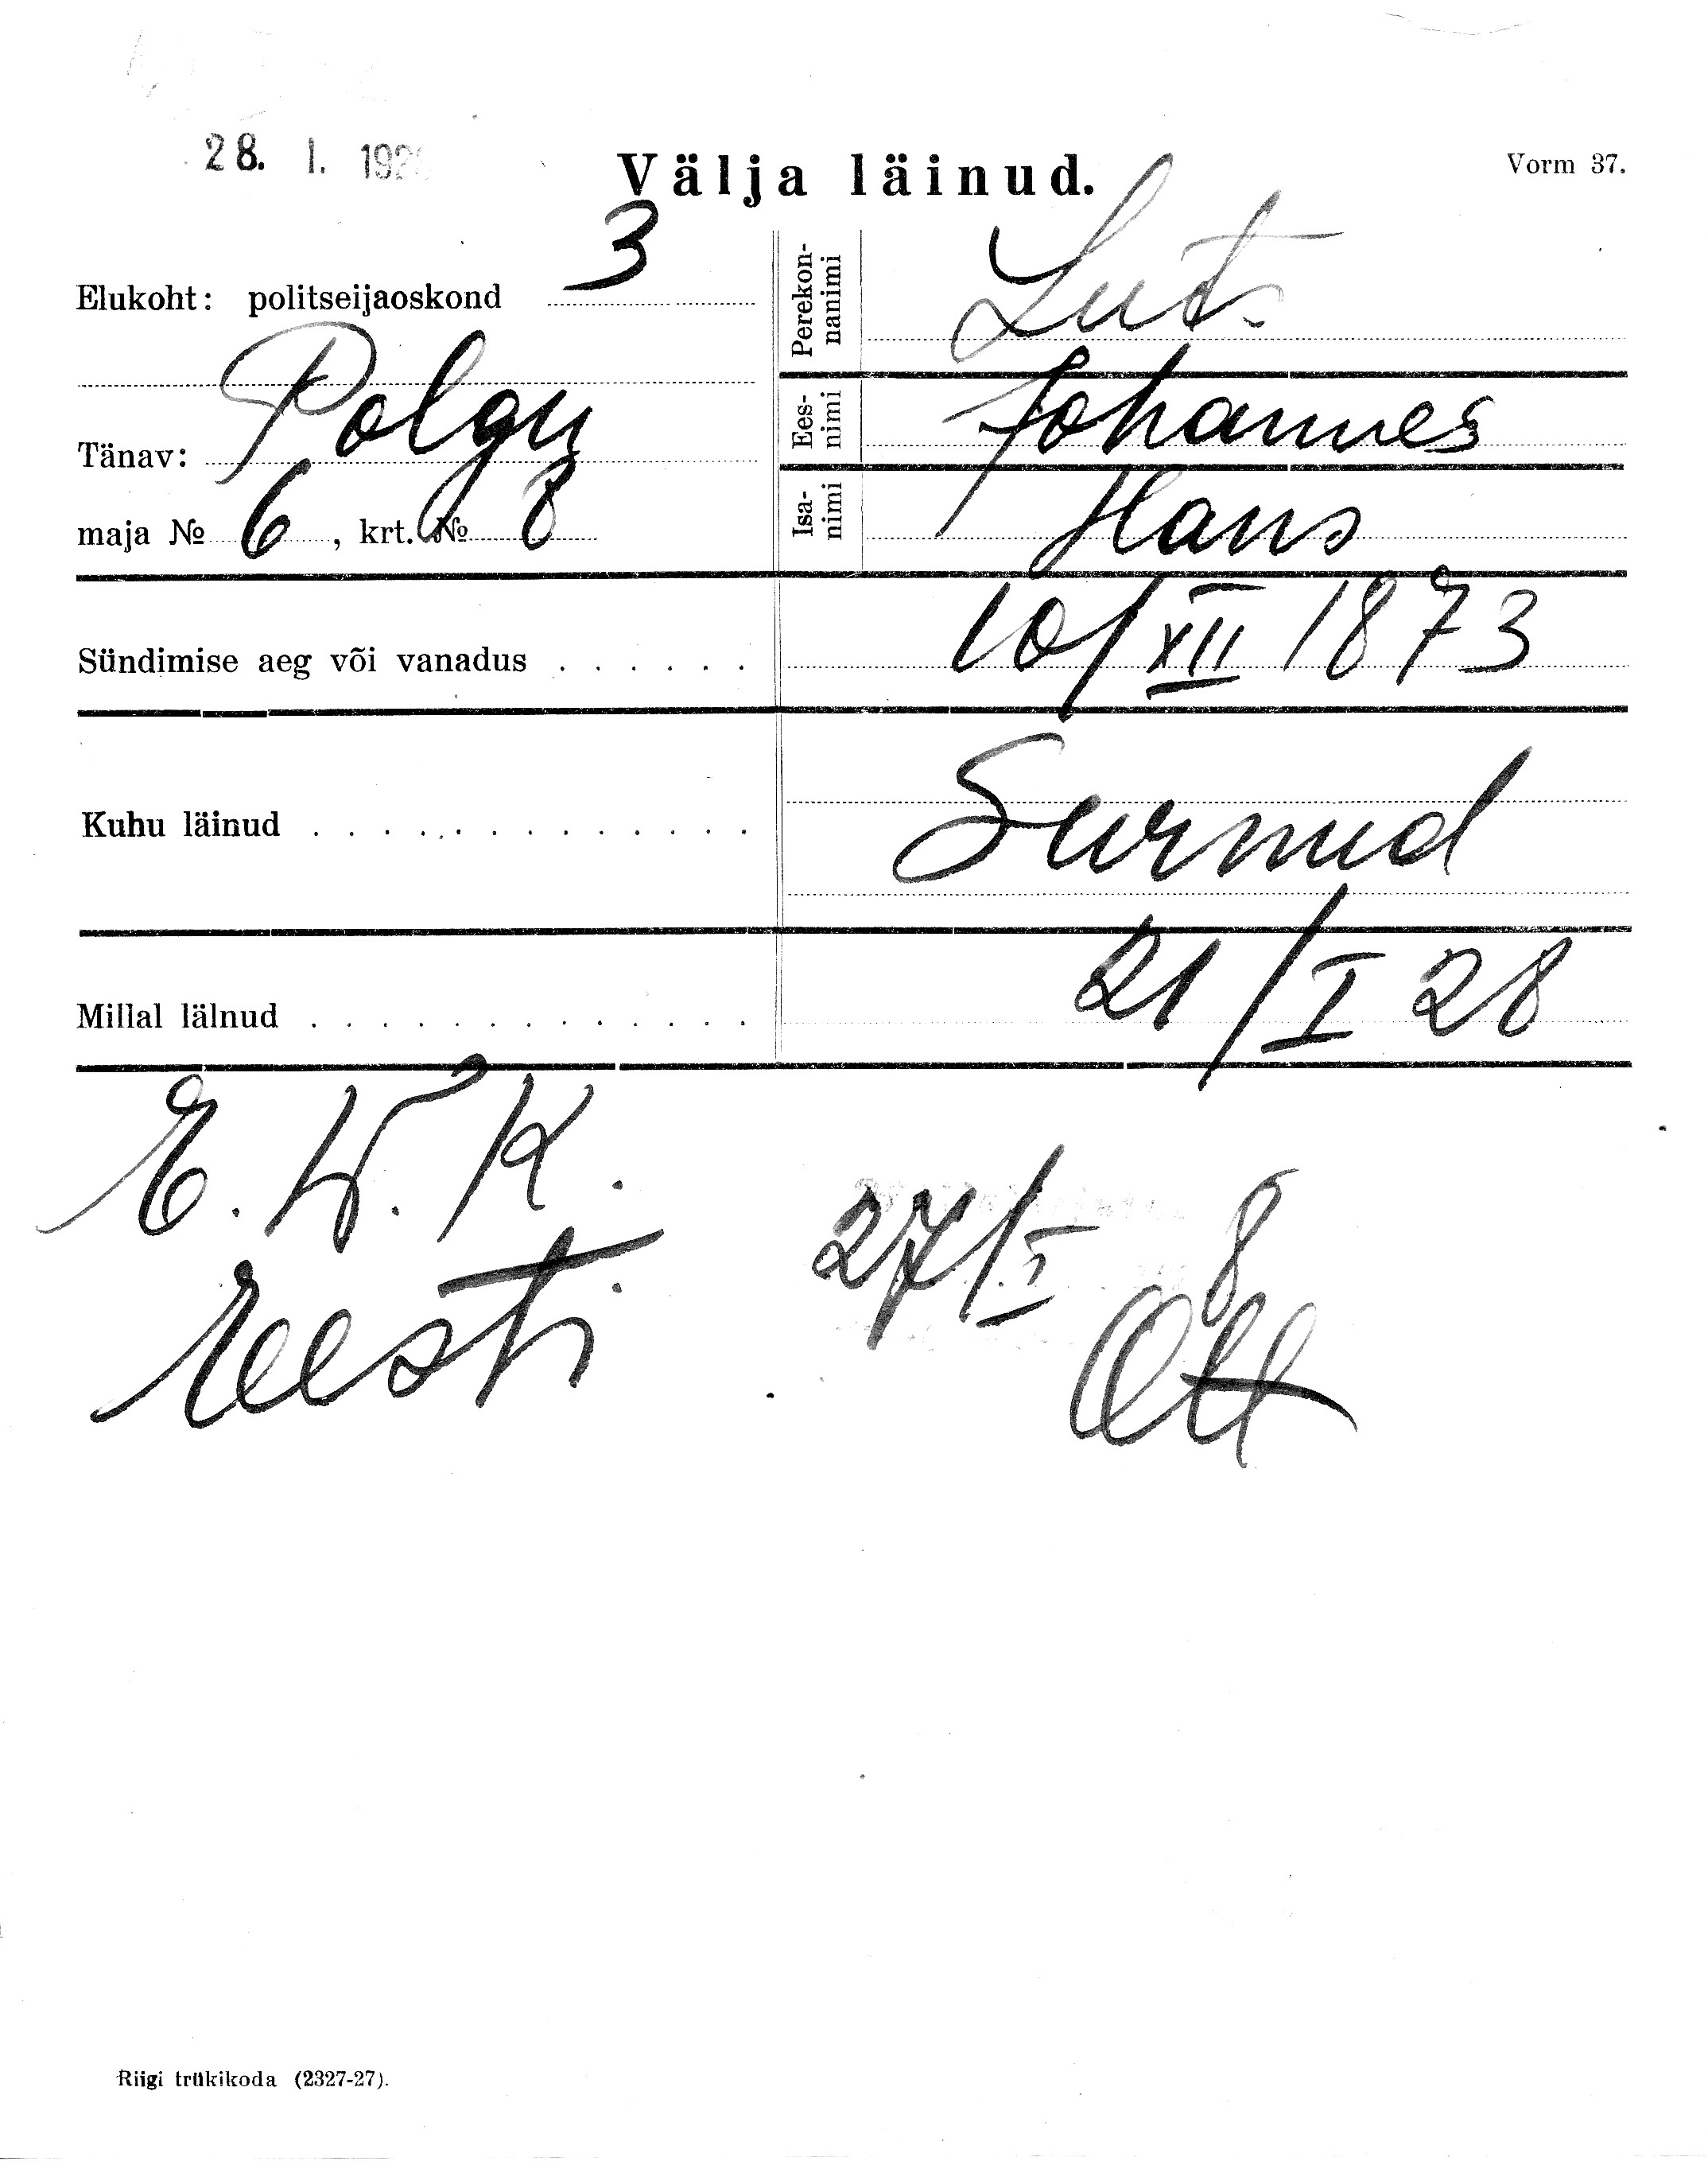 28. I. 192
Välja läinud.
Vorm 37.
Elukoht: politseijaoskond 3
Tänav: Polgu
maja № 6, krt. № 8
Perekonnanimi Luts
Eesnimi Johannes
Isanimi Hans
Sündimise aeg või vanadus . . . . . . 10/XII 1873
Kuhu läinud . . . . . . . . . . . . . Surnud
Millal läinud . . . . . . . . . . . . . 21/I 28
E. W. K.
Eesti
27/I 8
Ott
Riigi trükikoda (2327-27).